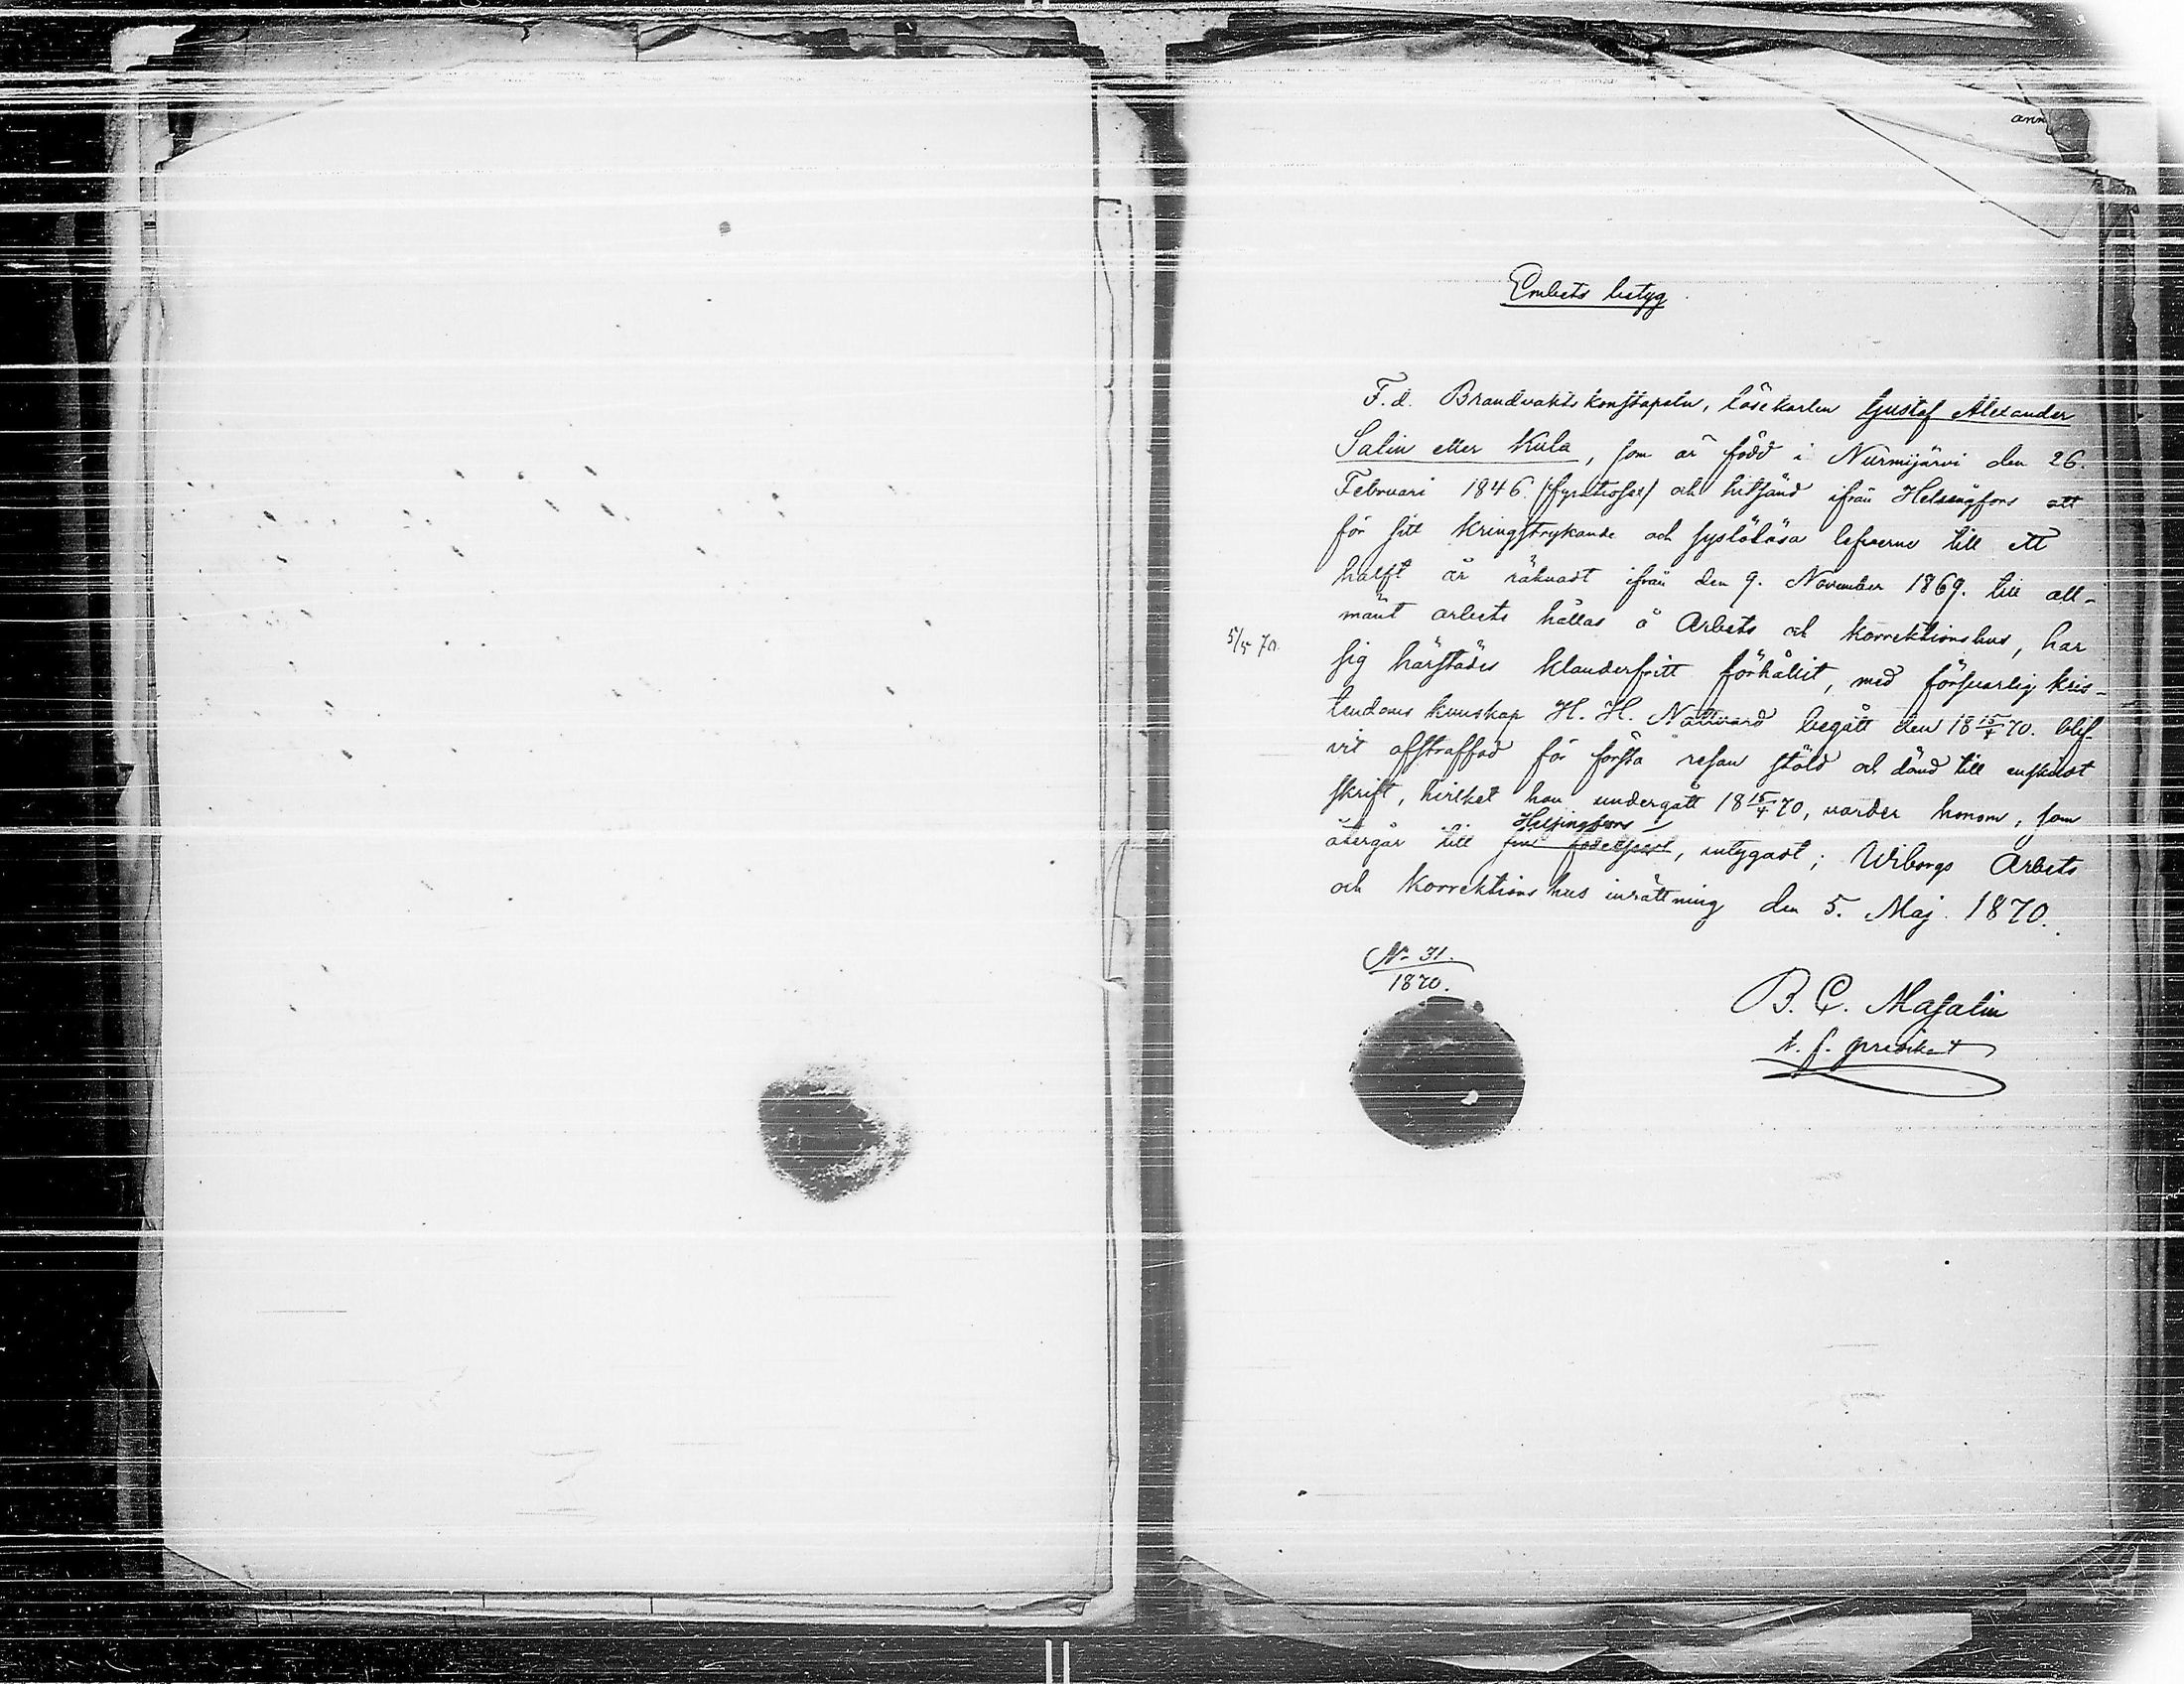 ann
Embets betyg
F. d. Brandvaktskonstapeln, lösekarlen Gustaf Alexander
Salin eller Kula, som är född i Nurmijärvi den 26.
Februari 1846. (fyratiosex) och hitsänd ifrån Helsingfors att
för sitt kringstrykande och syslolösa lefverne till ett
halft år räknadt ifrån den 9. November 1869. till all-
mänt arbete hållas å Arbets och korrektionshus, har
5/5 70.
sig härstädes klanderfritt förhållit, med försvarlig kris-
tendoms kunskap H. H. Nattvard begått den 18 15/4 70. blif-
vit afstraffad för första resan stöld och dömd till enskildt
skrift, hvilket han undergått 18 15/4 70, varder honom, som
Helsingfors
återgår till sin födelseort, intygadt; Wiborgs Arbets
och Korrektions hus inrättning den 5. Maj. 1870.
No 31.
1870.
B. C. Masalin
t. f. predikant